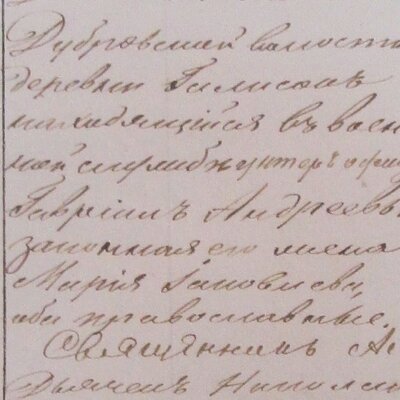 Дубровской волости
деревни
находящійся въ воен
ной службѣ унтеръ офи
Гавріилъ Андреевъ
законная его жена
Марія Іаковлева,
оба православные.
Священникъ Ал
Дьячекъ Николай